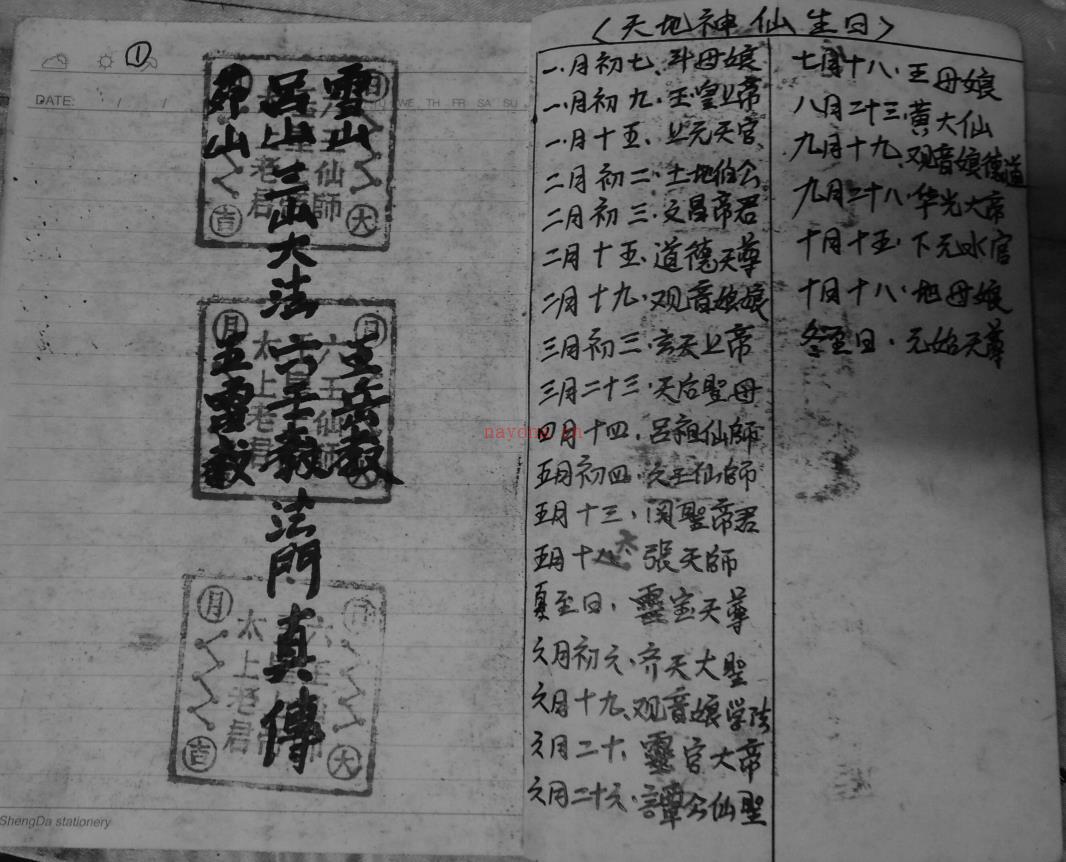 ①
DATE: / /
雪山
呂山
茅山
三山大法
五岳教
六壬教
五雷教
法門真傳
太上老君
六壬仙師
日
月
吉
大
ShengDa stationery
nayona.cn
〈天地神仙生日〉
一月初七、斗母娘
一月初九·玉皇上帝
一月十五·上元天官
二月初二·土地伯公
二月初三·文昌帝君
二月十五·道德天尊
二月十九·观音娘娘
三月初三·玄天上帝
三月二十三·天后聖母
四月十四·呂祖仙師
五月初四·六壬仙師
五月十三·関聖帝君
五月十八·張天師
夏至日·靈宝天尊
六月初六·齐天大聖
六月十九·观音娘学法
六月二十·靈官大帝
六月二十六·譚公仙聖
七月十八·王母娘
八月二十三·黄大仙
九月十九·观音娘德道
九月二十八·华光大帝
十月十五·下元水官
十月十八·地母娘
冬至日·元始天尊